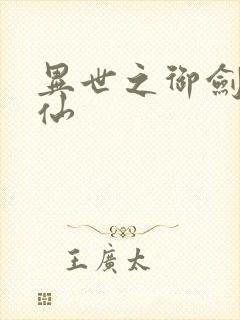 異世之御劍
仙
王廣太